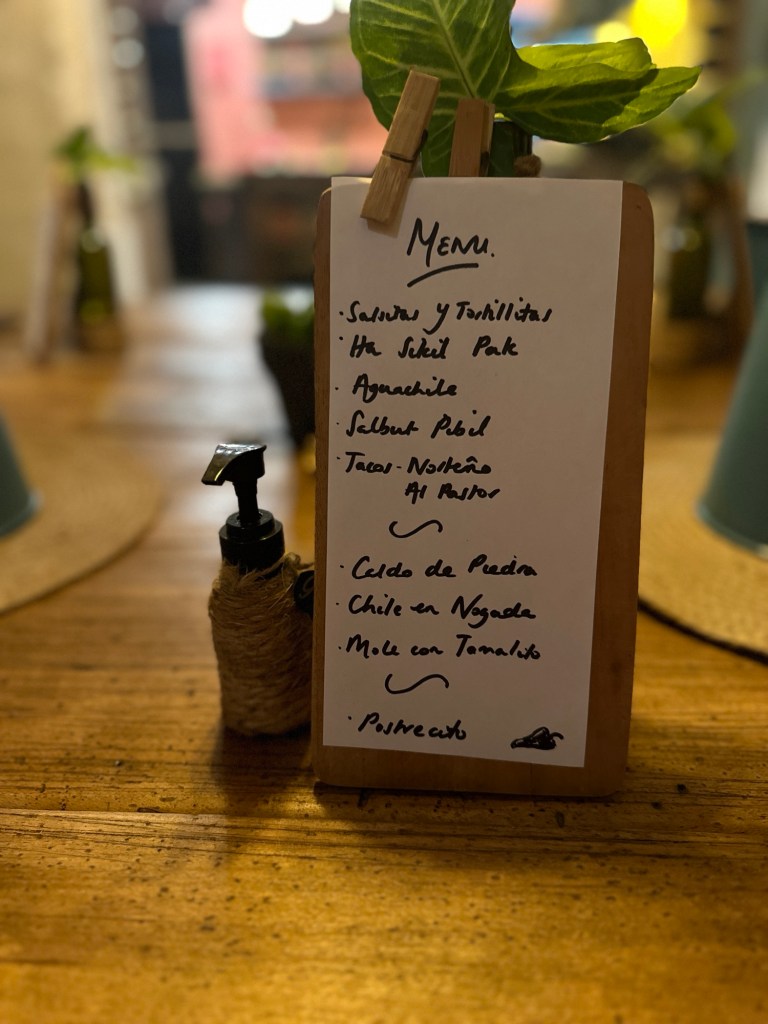 Menu.
· Salsitas y Tortillitas
· Ha Sikil Pak
· Aguachile
· Salbut Pibil
· Tacos - Norteño
Al Pastor
· Caldo de Piedra
· Chile en Nogada
· Mole con Tamalito
· Postrecito